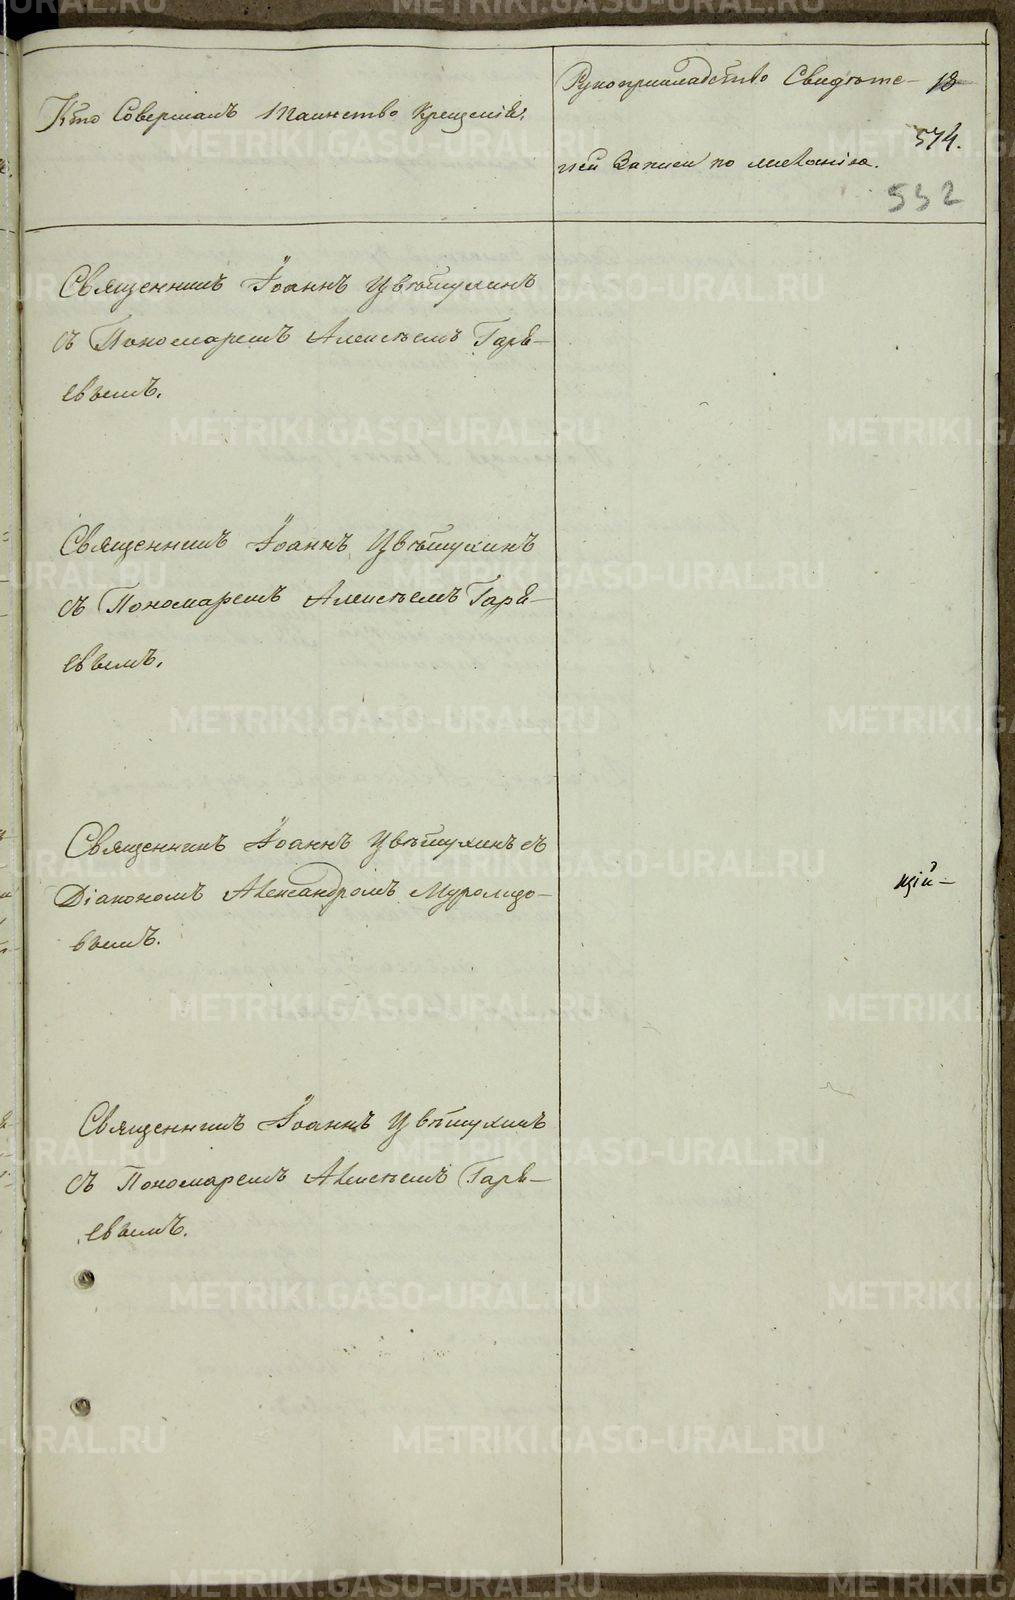 Кто Совершалъ таинство Крещенія.
Рукоприкладство Свидѣте-
лей Записи по желанію.
13
574.
532
Священникъ Іоаннъ Цвѣтухинъ
съ Пономаремъ Алексѣемъ Гаря-
евымъ.
Священникъ Іоаннъ Цвѣтухинъ
съ Пономаремъ Алексѣемъ Гаря-
евымъ.
Священникъ Іоаннъ Цвѣтухинъ съ
Діакономъ Александромъ Муромцо-
вымъ.
цій-
Священникъ Іоаннъ Цвѣтухинъ
съ Пономаремъ Алексѣемъ Гаря-
евымъ.
METRIKI.GASO-URAL.RU